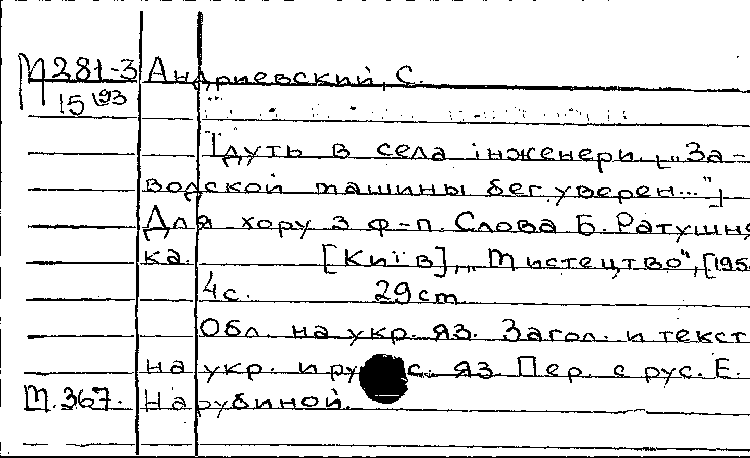 М281-3 Андриевский, С.
15/93
Їдуть в села інженери. [„За-
водской машины бег уверен..."]
Для хору з ф-п. Слова Б. Ратушня
ка. [Київ], „Мистецтво", [195
4с. 29cm
Обл. на укр. яз. Загол. и текст
на укр. и рус. яз. Пер. с рус. Е.
М.367. Нарубиной.